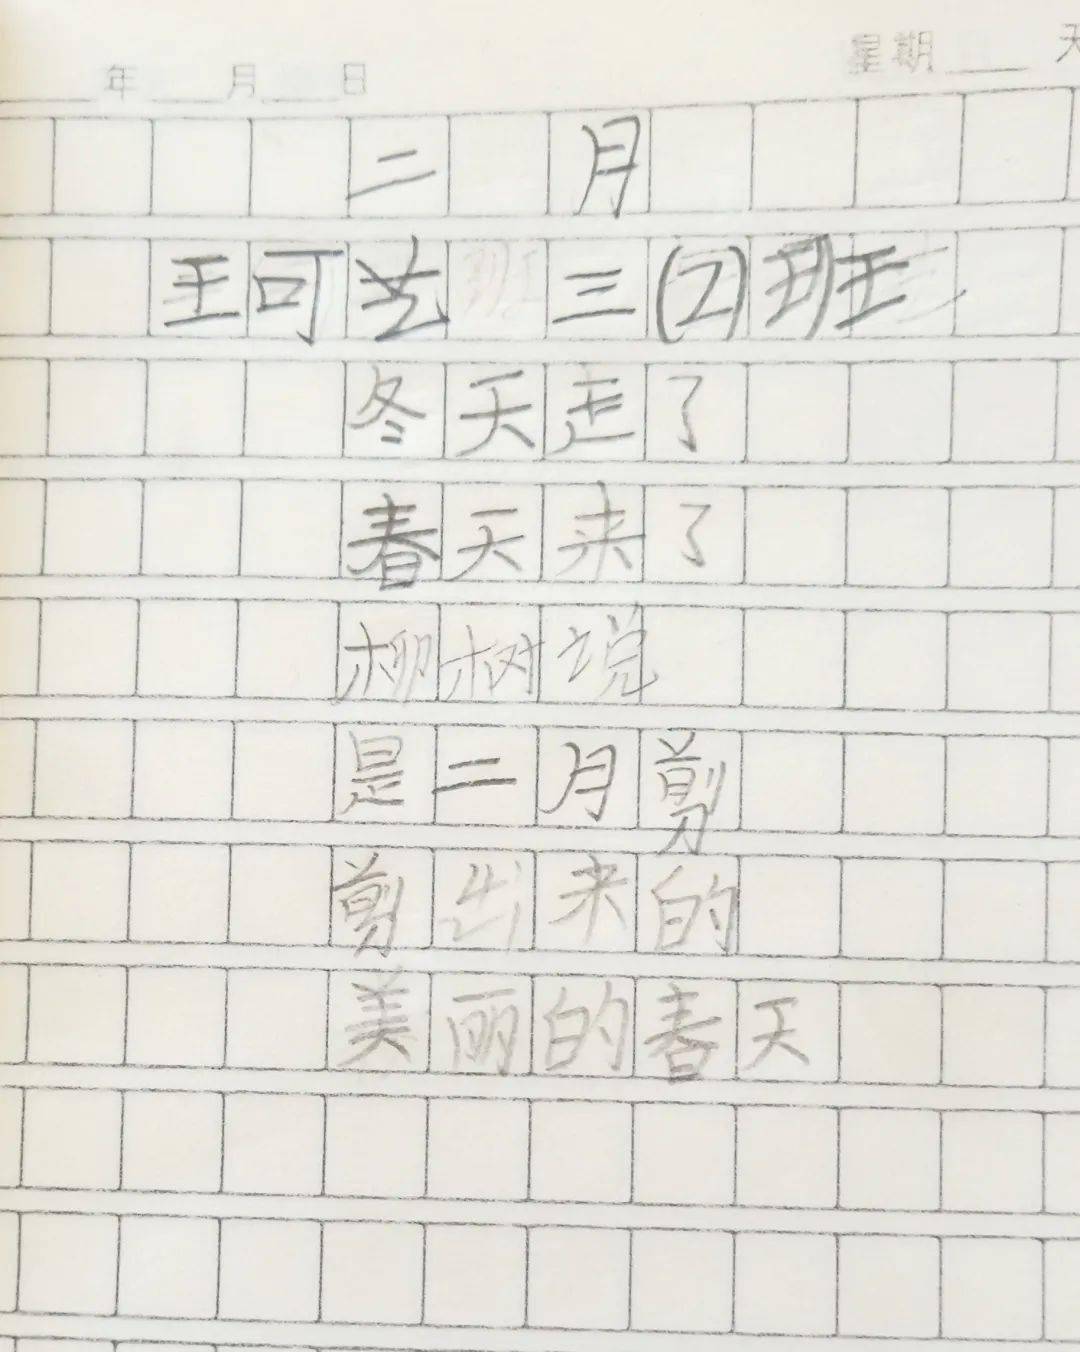 年 月 日 星期 天
二月
王可艺 三(2)班
冬天走了
春天来了
柳树说
是二月剪
剪出来的
美丽的春天